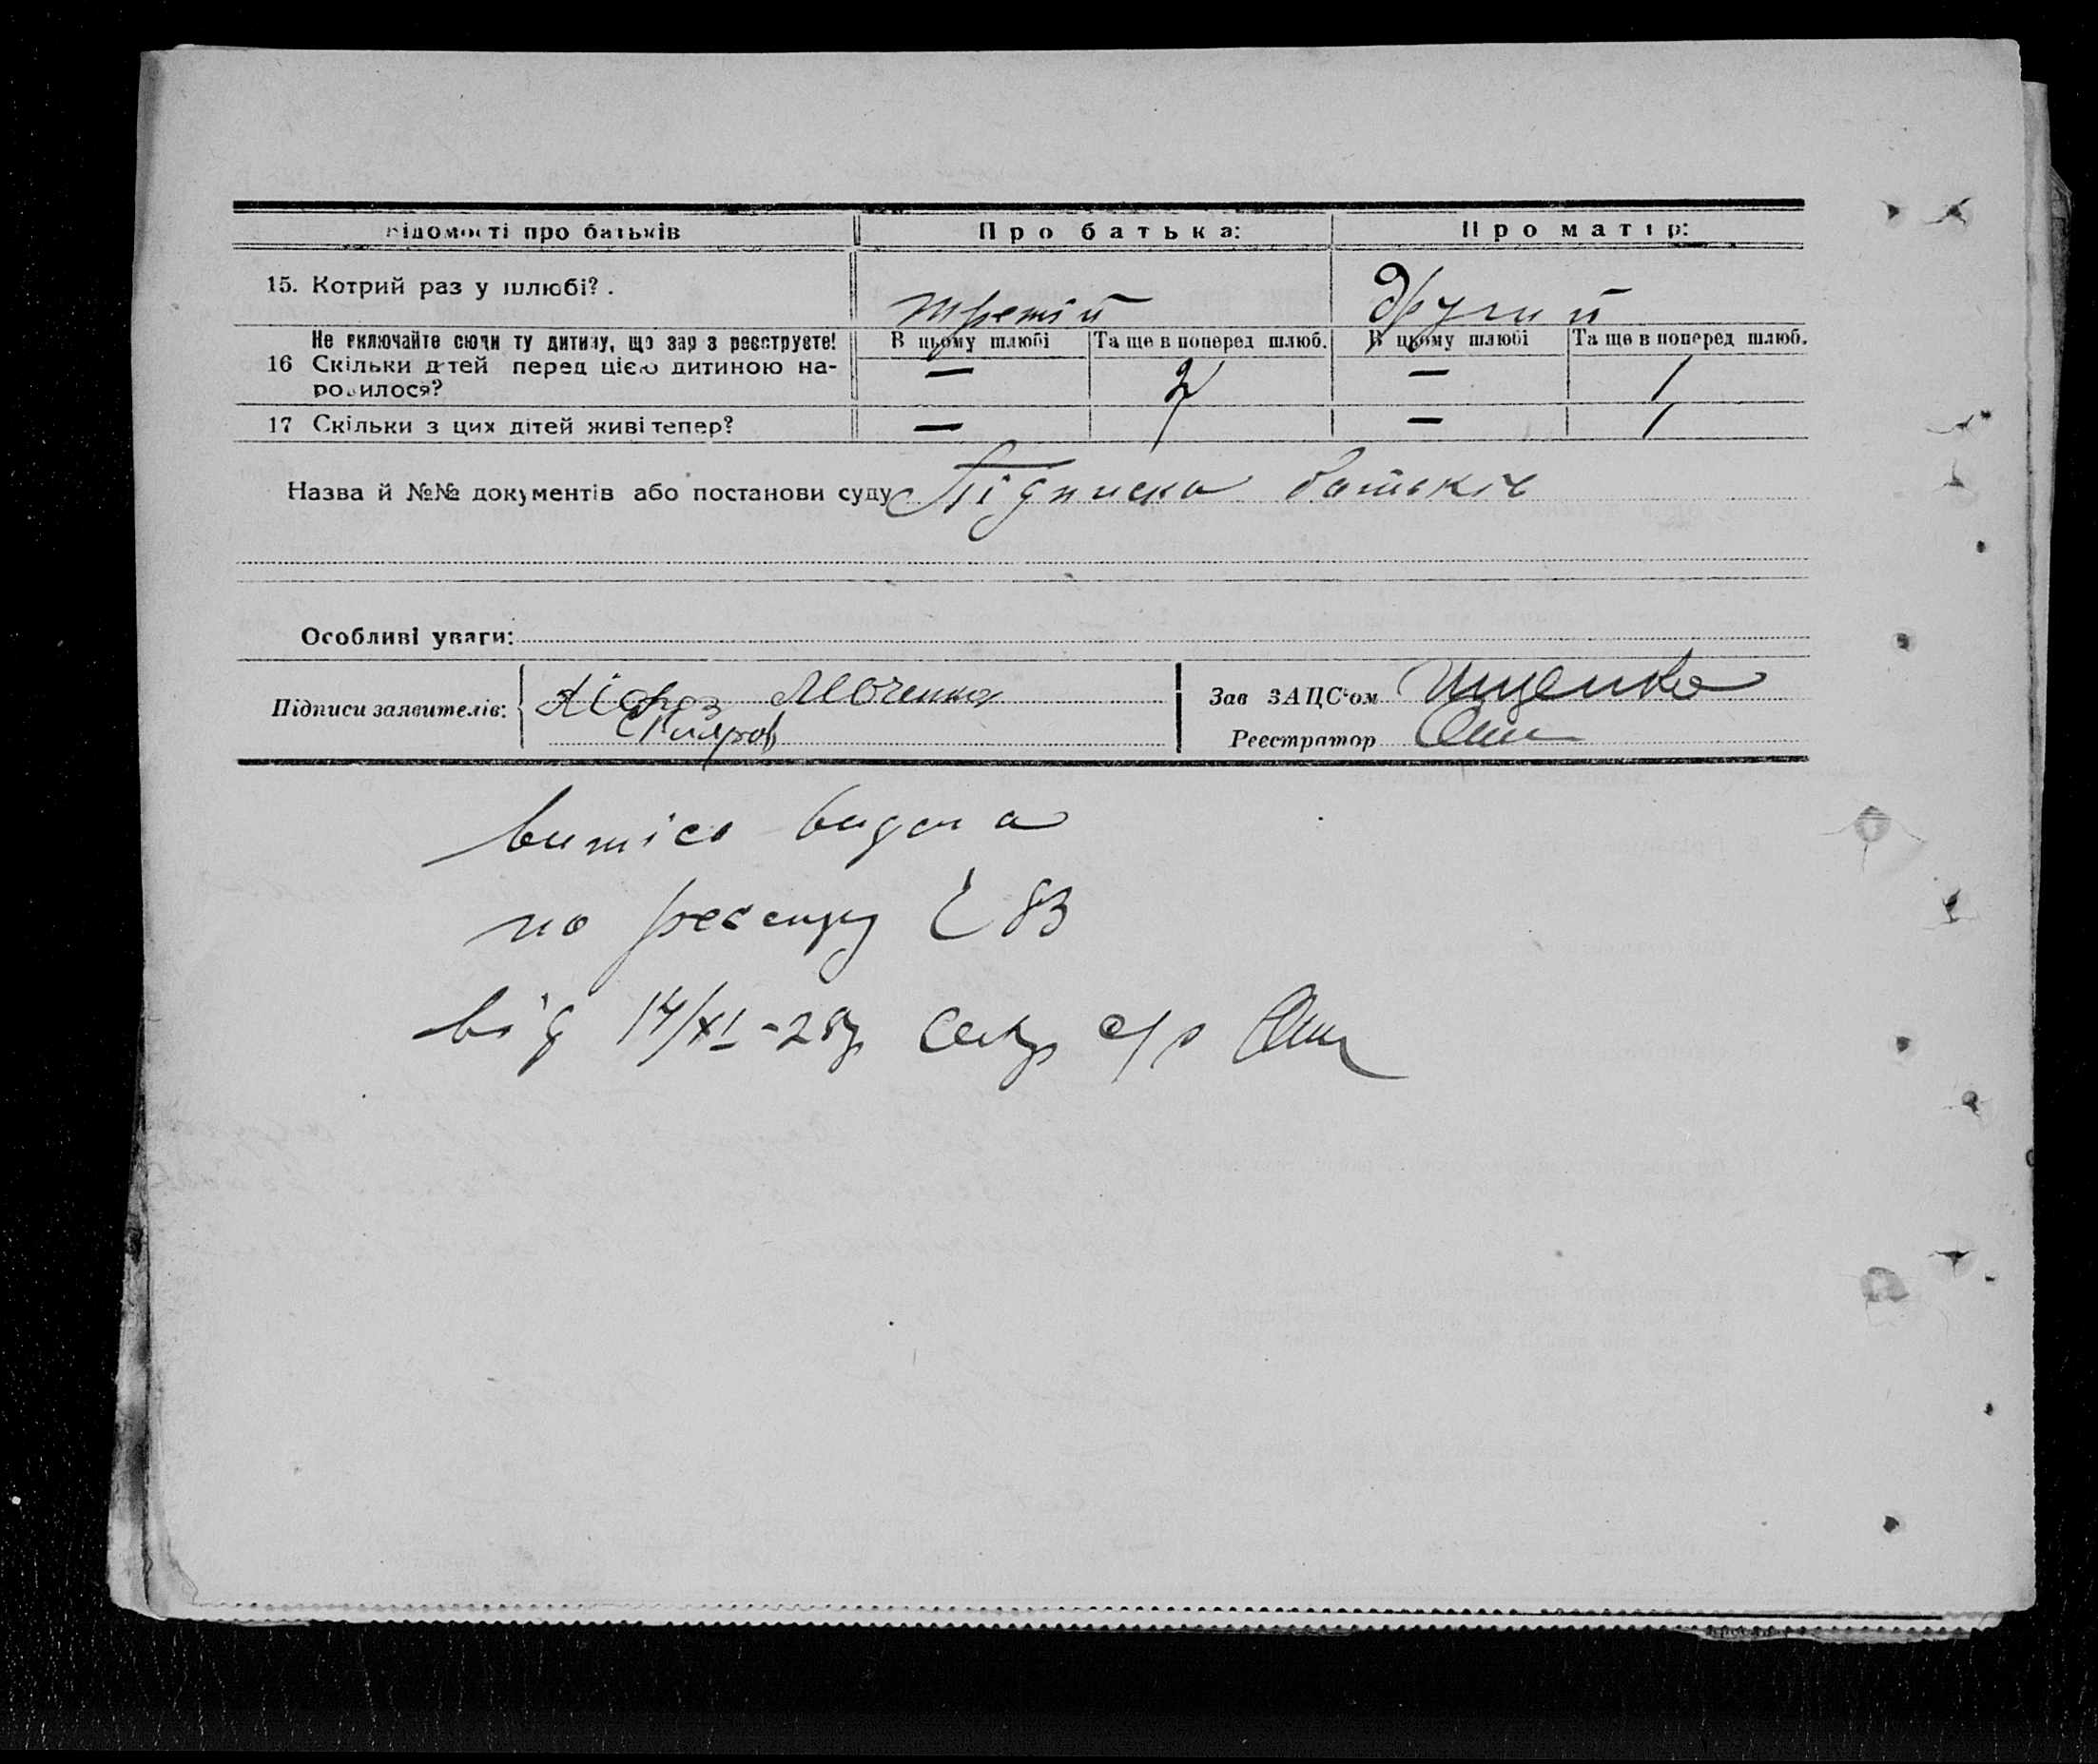 Відомості про батьків Про батька: Про матір:
15. Котрий раз у шлюбі? . третій другий
Не включайте сюди ту дитину, що зараз реєструєте! В цьому шлюбі Та ще в поперед шлюб. В цьому шлюбі Та ще в поперед шлюб.
16 Скільки дітей перед цією дитиною на- — 2 — 1
родилося?
17 Скільки з цих дітей живі тепер? — 1 — 1
Назва й №№ документів або постанови суду Підписка батьків
Особливі уваги:
Підписи заявителів: Мороз Зав ЗАЦС'ом Іщенко
Реєстратор
витяг видана
по реєстру 83
від 14/XI-28р Секр с/р